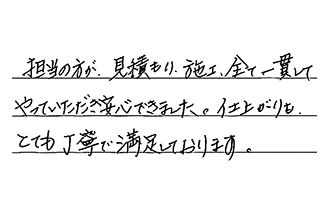 担当の方が、見積もり、施工、全て一貫して
やっていただき安心できました。仕上がりも、
とても丁寧で満足しております。